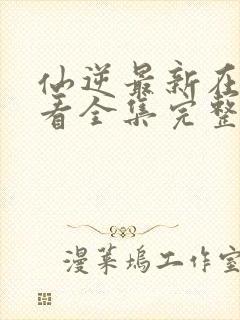 仙逆最新在
看全集完整
漫莱坞工作室